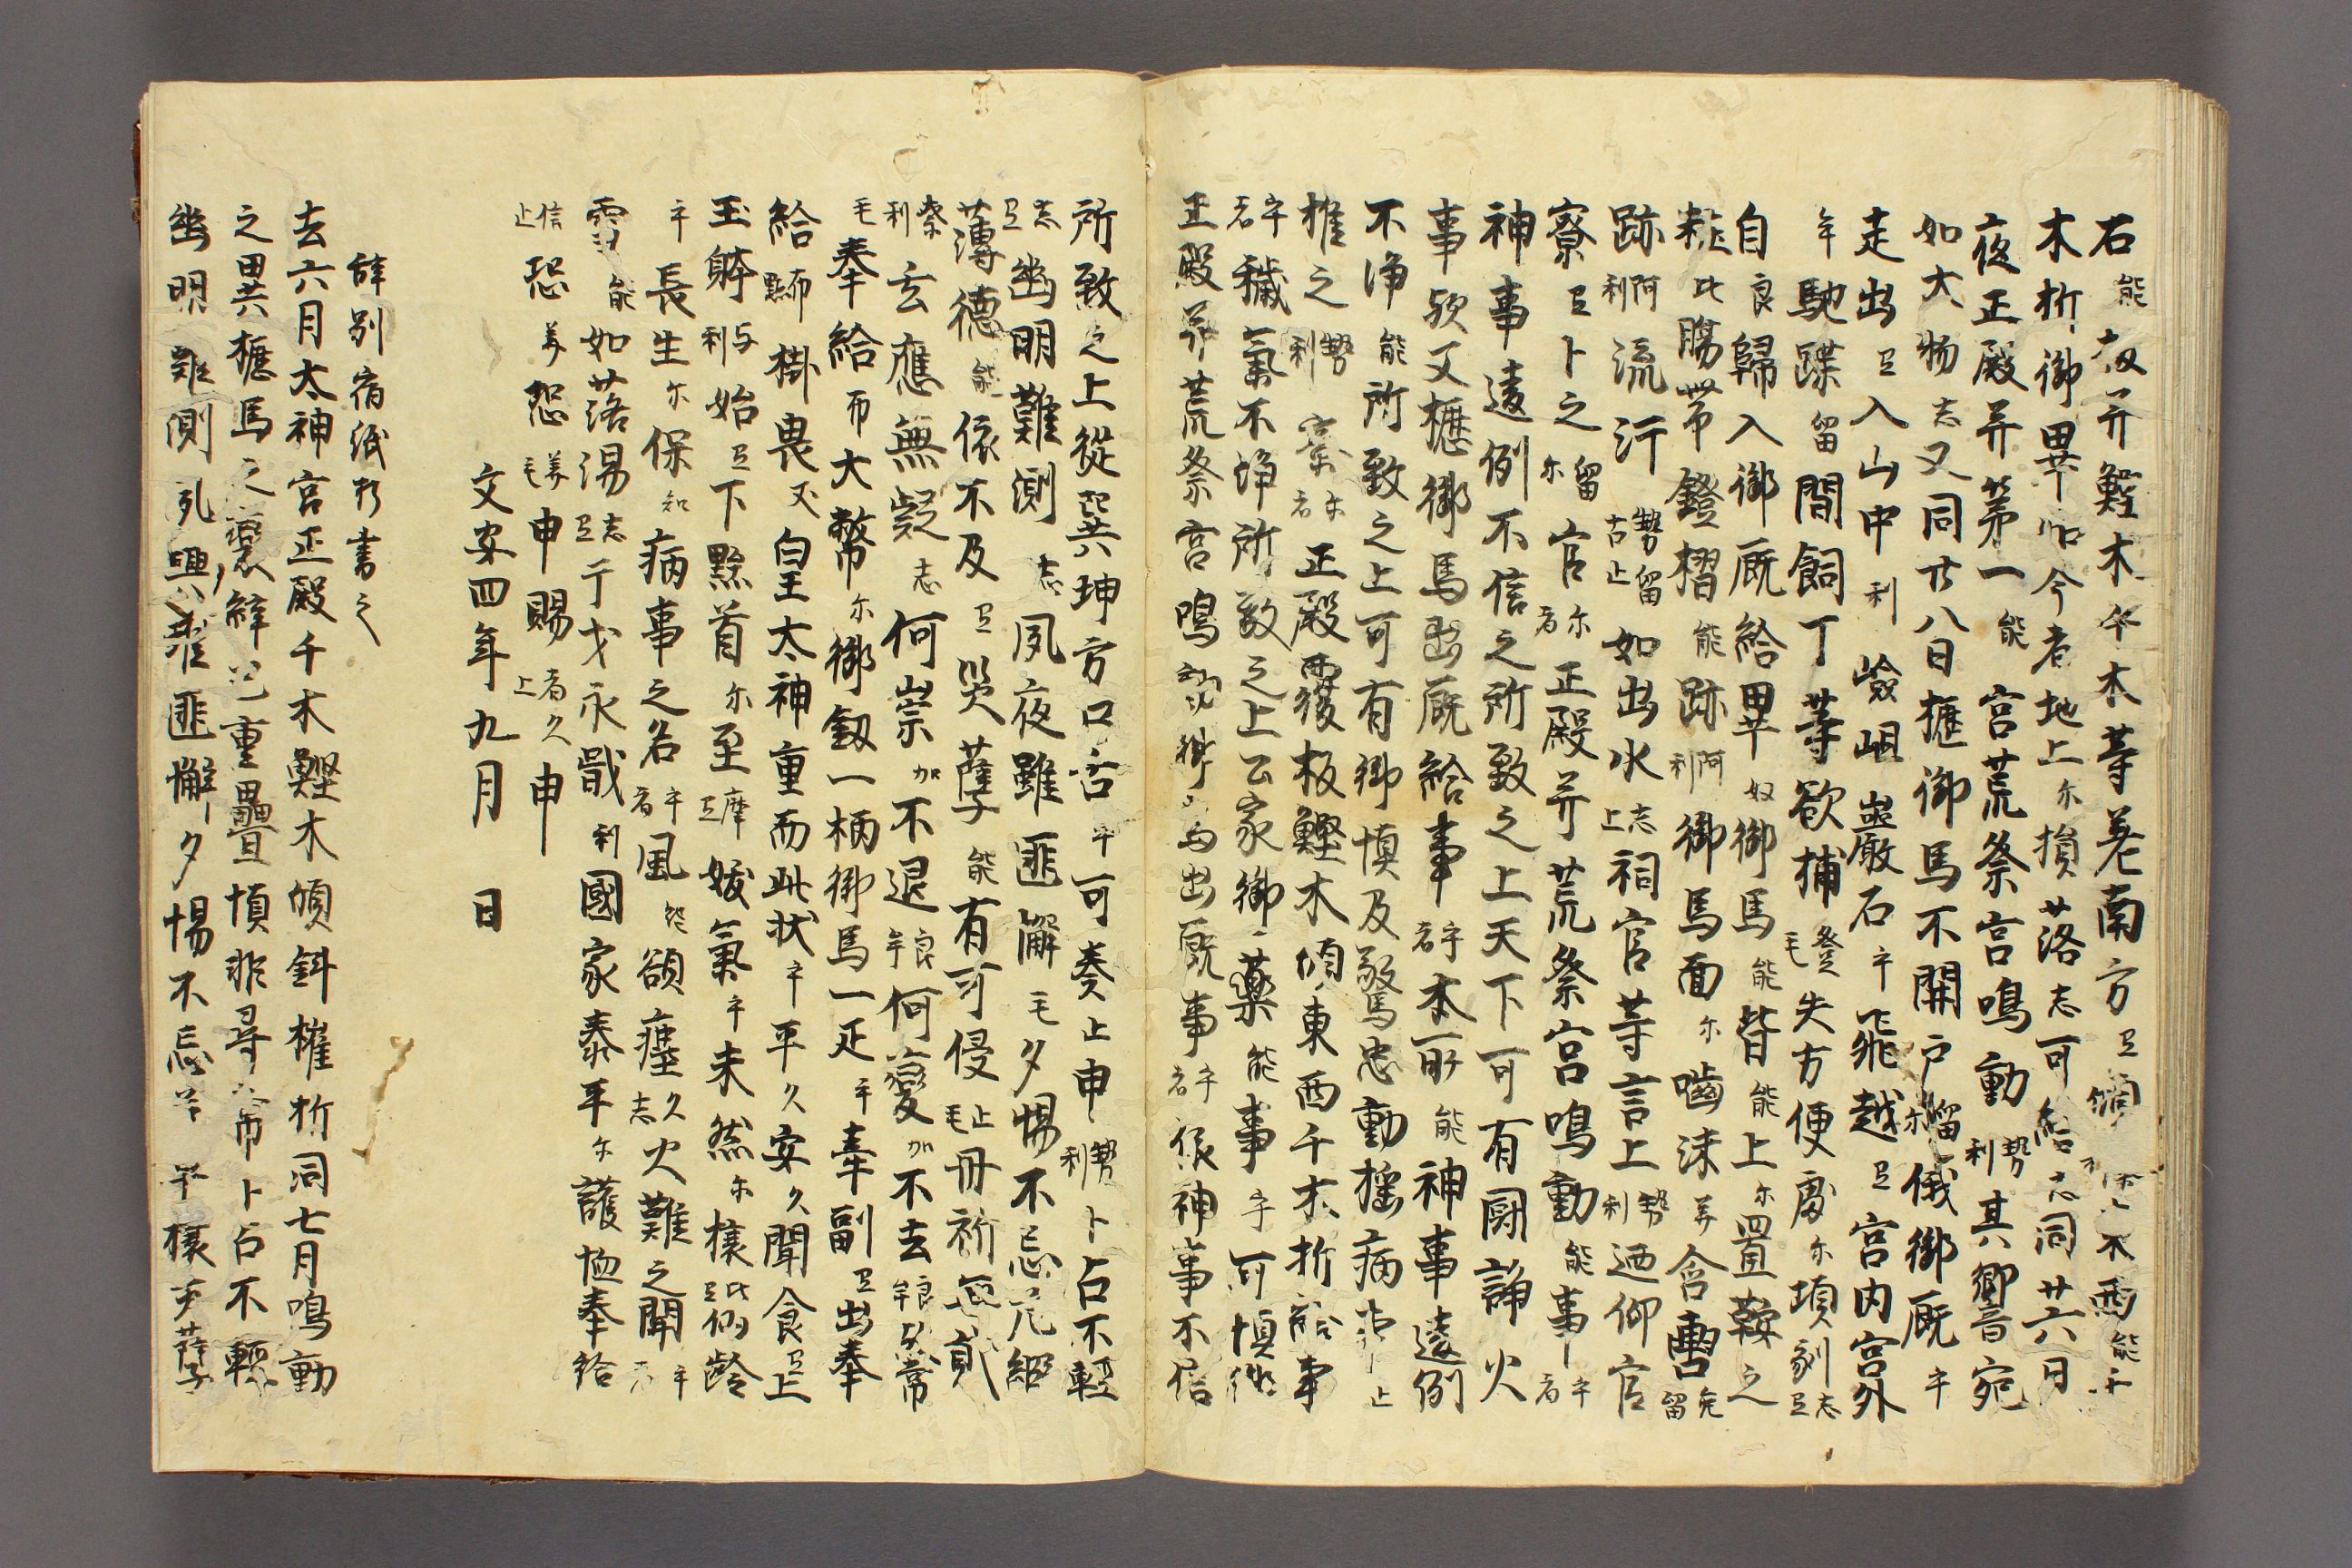 石能板并鰹木千木等著南方尓傾
木折御畢如今者地上尓損落志可給志同廿六日
夜正殿并第一能宮荒祭宮鳴動勢利其響音宛
如大物志又同廿八日櫪御馬不開戸留尓俄御厩乎
走出天入山中利嶮岨巌石乎飛越天宮内宮外
乎馳蹀留間飼丁等欲捕登毛失方便處尓頃剋志天
自良歸入御厩給畢奴御馬能背能上尓置鞍之
粧比腸帯鐙摺能跡阿利御馬面尓噛沫美含轡免留
跡阿利流汗勢留古止如出水志上祠官等言上勢利迺仰官
寮天卜之留尓官尓者正殿并荒祭宮鳴動能事乎者
神事違例不信之所致之上天下可有闘諍火
事欤又櫪御馬出厩給事乎者本所能神事違例
不浄能所致之上可有御慎及驚恐動揺病事止
推之勢利寮尓者正殿覆板鰹木傾東西千木折給事
乎者穢氣不浄所致之上公家御薬能事乎可慎御
正殿并荒祭宮鳴動御馬出厩事乎者依神事不信
所致之上從巽坤方口舌乎可奏止申勢利卜占不輕
志天幽明難測志夙夜雖匪懈毛夕惕不忘尤細
薄德能依不及天災孽能有可侵止毛毋祈無貳
崇利玄應無疑志何崇加不退良牟何變加不去良牟然常
毛奉給布大幣尓御釼一柄御馬一疋乎牽副天出奉
給布掛畏支皇太神重而此状乎平久安久聞食天上
玉躰与利始天下黔首尓至麻天媛氣乎未然尓攘比天仙齡
乎長生尓保知病事之名乎者風能欲塵久志火難之聞乎
雪能如落湯志天干戈永戢利國家泰平尓護恤奉給
信止恐美恐美毛申賜者久上申
文安四年九月　日
辞別宿紙打書之
去六月太神宮正殿千木鰹木傾斜權折同七月鳴動
之異櫪馬之褻縡已重疊慎非尋常卜占不輕
幽明難測夙興雖匪懈夕惕不忘早攘妖孽